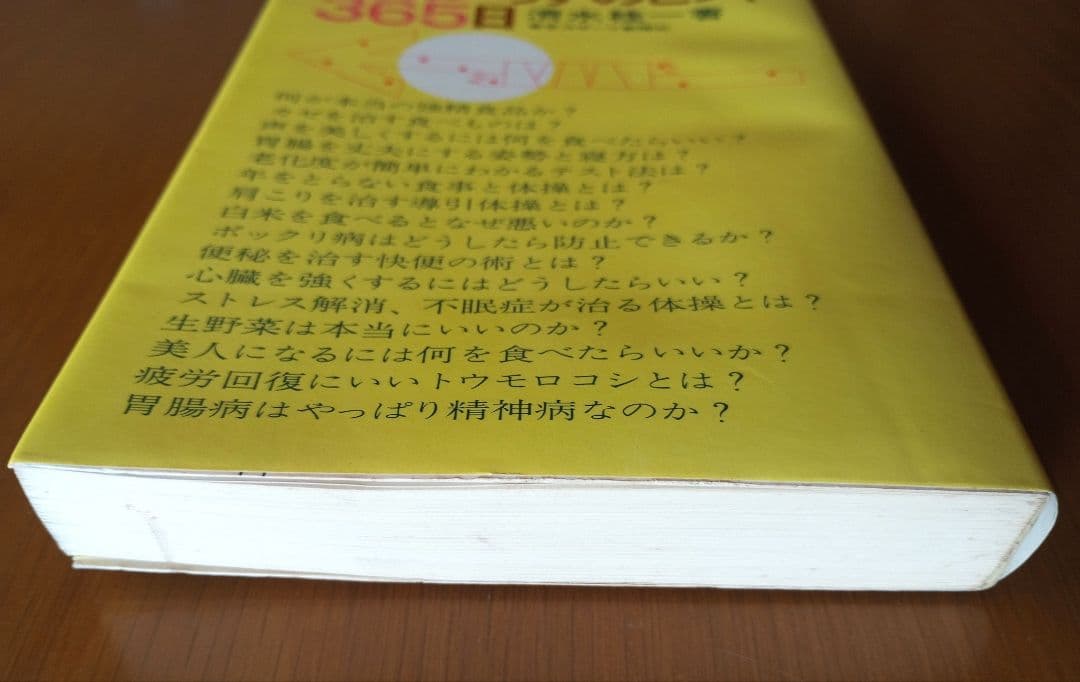 365日 清水桂一著
何が本当の強精食品か？
カゼを治す食べものは？
歯を美しくするには何を食べたらいい？
胃腸を丈夫にする姿勢と寝方は？
老化度が簡単にわかるテスト法は？
年をとらない食事と体操とは？
肩こりを治す導引体操とは？
白米を食べるとなぜ悪いのか？
ポックリ病はどうしたら防止できるか？
便秘を治す快便の術とは？
心臓を強くするにはどうしたらいい？
ストレス解消、不眠症が治る体操とは？
生野菜は本当にいいのか？
美人になるには何を食べたらいいか？
疲労回復にいいトウモロコシとは？
胃腸病はやっぱり精神病なのか？